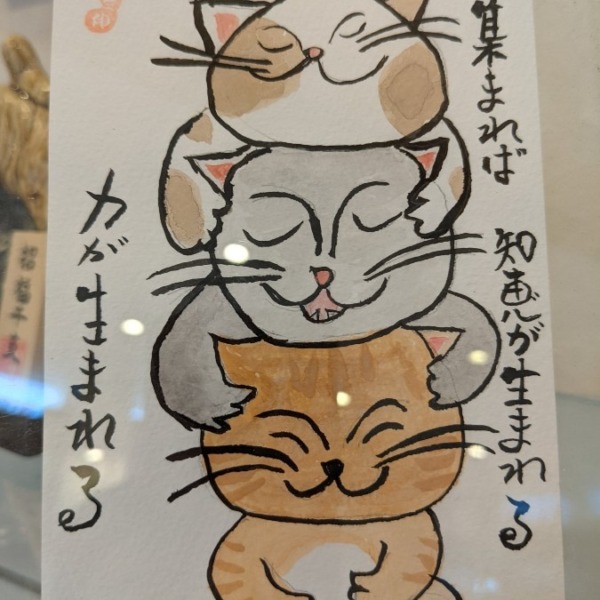 集まれば
知恵が生まれる
力が生まれる